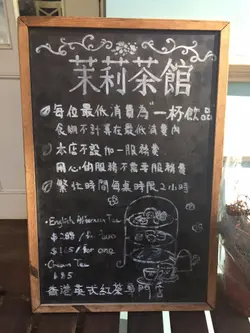 茉莉茶館
每位最低消費為"一杯飲品"
食物不計算在最低消費內
本店不設加一服務費
用心的服務不需要服務費
繁忙時間每桌時限2小時
English Afternoon Tea
for two
for one
Cream Tea
$85
香港英式紅茶專門店